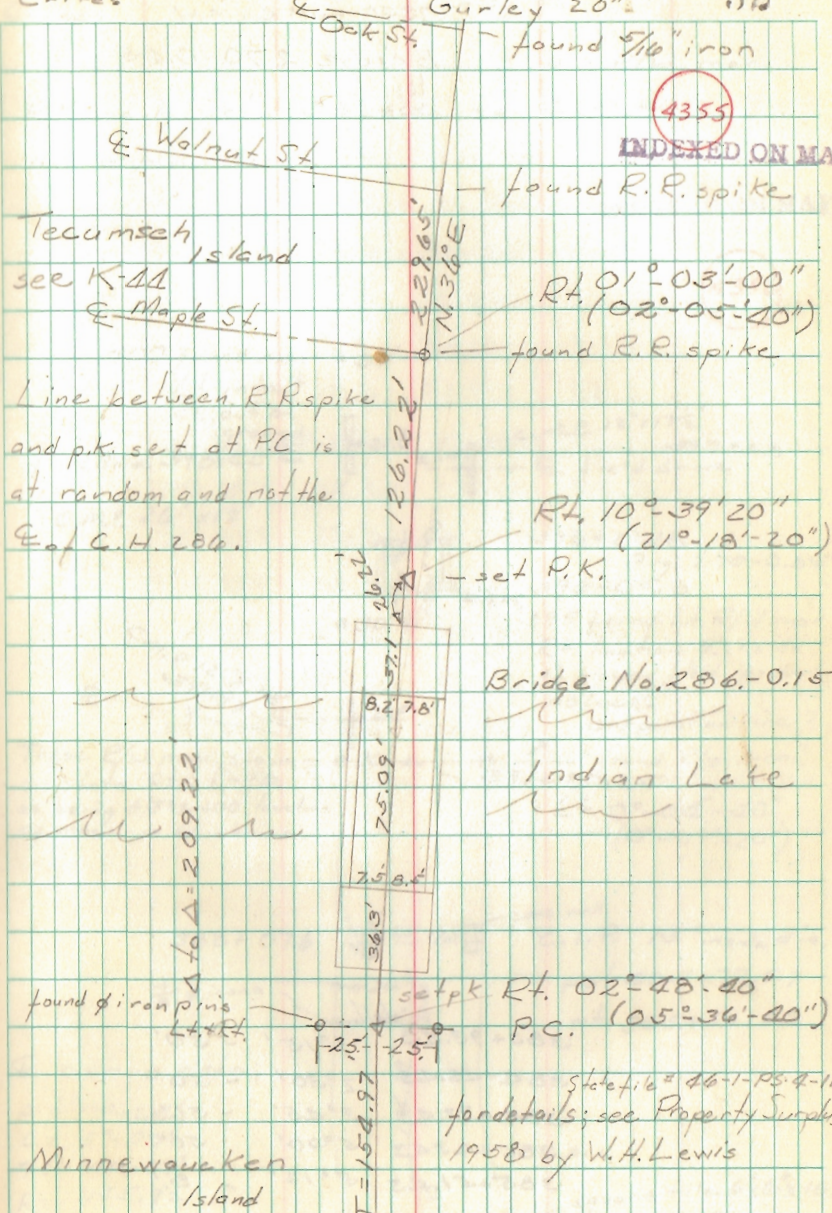 ℄ Oak St.
Gurley 20"
found 5/16" iron
4355
INDEXED ON MA
℄ Walnut St.
found R.R. spike
Tecumseh
Island
see K-44
229.65'
N. 36° E
Rt. 01°-03'-00"
(02°-05'-40")
℄ Maple St.
found R.R. spike
Line between R.R. spike
and p.k. set at P.C. is
at random and not the
℄ of C.H. 286.
126.22'
Rt. 10°-39'20"
(21°-18'-20")
set P.K.
26.22'
37.1
Bridge No. 286.-0.15
8.2' 7.8'
75.09'
Indian Lake
Δ to Δ = 209.22'
7.5' 8.5'
36.3'
found ø iron pins
Lt. & Rt.
set pk Rt. 02°-48'-40"
P.C. (05°-36'-40")
25' 25'
T = 154.97
State file # 46-1-PS.4-1
for details; see Property Surplus
1958 by W.H. Lewis
Minnewauken
Island